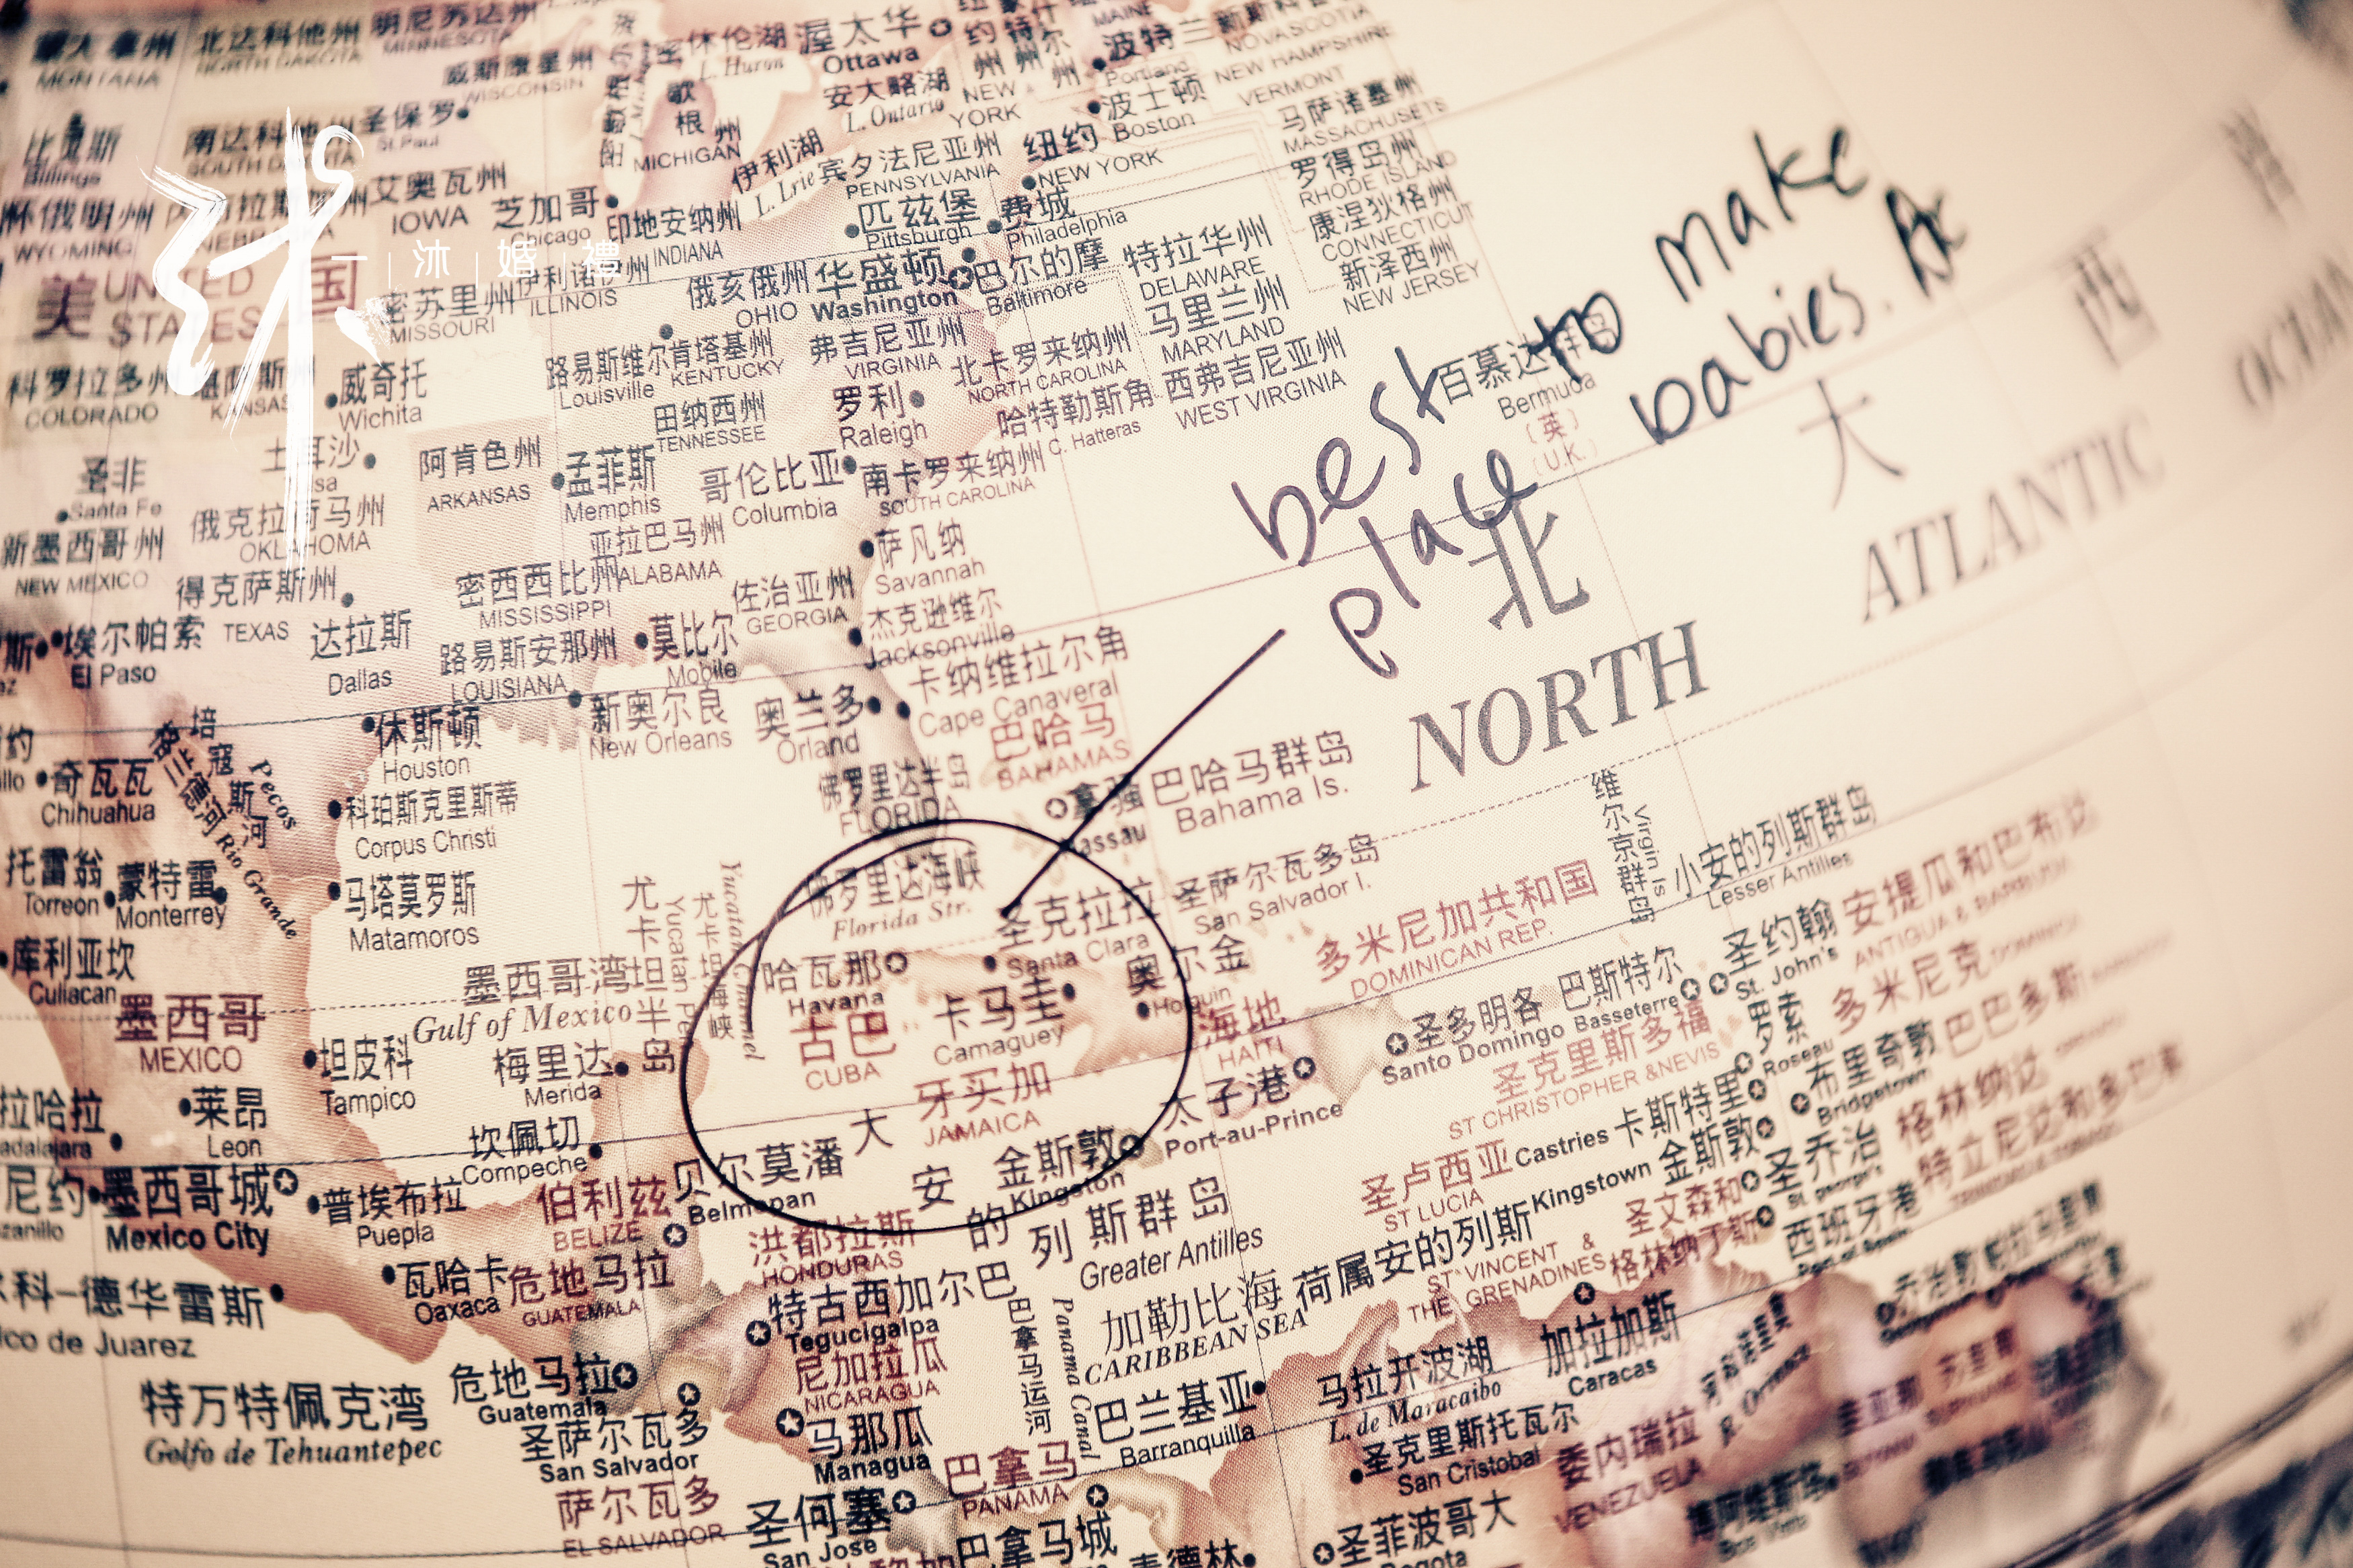 蒙大拿州
MONTANA
北达科他州
NORTH DAKOTA
明尼苏达州
MINNESOTA
威斯康星州
WISCONSIN
休伦湖
L. Huron
渥太华
Ottawa
安大略湖
L. Ontario
NEW
YORK
波特兰
Portland
MAINE
NOVASCOTIA
NEW HAMPSHIRE
VERMONT
波士顿
Boston
马萨诸塞州
MASSACHUSETS
比灵斯
Billings
南达科他州
SOUTH DAKOTA
圣保罗
St.Paul
MICHIGAN
伊利湖
L. Lrie
宾夕法尼亚州
PENNSYLVANIA
纽约
NEW YORK
罗得岛州
RHODE ISLAND
怀俄明州
WYOMING
艾奥瓦州
IOWA
芝加哥
Chicago
印地安纳州
INDIANA
匹兹堡
Pittsburgh
费城
Philadelphia
康涅狄格州
CONNECTICUT
一 沐 婚 禮
美国
UNITED
STATES
密苏里州
MISSOURI
伊利诺伊州
ILLINOIS
俄亥俄州
OHIO
华盛顿
Washington
巴尔的摩
Baltimore
特拉华州
DELAWARE
新泽西州
NEW JERSEY
马里兰州
MARYLAND
科罗拉多州
COLORADO
KANSAS
威奇托
Wichita
路易斯维尔
Louisville
肯塔基州
KENTUCKY
弗吉尼亚州
VIRGINIA
北卡罗来纳州
NORTH CAROLINA
西弗吉尼亚州
WEST VIRGINIA
田纳西州
TENNESSEE
罗利
Raleigh
哈特勒斯角
C. Hatteras
圣非
Santa Fe
阿肯色州
ARKANSAS
孟菲斯
Memphis
哥伦比亚
Columbia
南卡罗来纳州
SOUTH CAROLINA
best to make
place babies.
百慕达群岛
Bermuda
(英)
(U.K.)
新墨西哥州
NEW MEXICO
OKLAHOMA
亚拉巴马州
ALABAMA
萨凡纳
Savannah
得克萨斯州
TEXAS
密西西比州
MISSISSIPPI
佐治亚州
GEORGIA
杰克逊维尔
Jacksonville
埃尔帕索
El Paso
达拉斯
Dallas
路易斯安那州
LOUISIANA
莫比尔
Mobile
卡纳维拉尔角
Cape Canaveral
北大西
NORTH ATLANTIC
休斯顿
Houston
新奥尔良
New Orleans
奥兰多
Orland
巴哈马
BAHAMAS
奇瓦瓦
Chihuahua
格兰德河
Rio Grande
培寇斯河
Pecos
科珀斯克里斯蒂
Corpus Christi
佛罗里达半岛
FLORIDA
拿骚
Nassau
巴哈马群岛
Bahama Is.
托雷翁
Torreon
蒙特雷
Monterrey
马塔莫罗斯
Matamoros
佛罗里达海峡
Florida Str.
圣克拉拉
Santa Clara
圣萨尔瓦多岛
San Salvador I.
维尔京群岛
Virgin Is
小安的列斯群岛
Lesser Antilies
库利亚坎
Culiacan
墨西哥湾
Gulf of Mexico
尤卡坦半岛
Yucatan Pen
尤卡坦海峡
Yucatan Channel
哈瓦那
Havana
古巴
CUBA
卡马圭
Camaguey
奥尔金
Holguin
多米尼加共和国
DOMINICAN REP.
圣约翰
St. John's
安提瓜和巴布达
墨西哥
MEXICO
坦皮科
Tampico
梅里达
Merida
牙买加
JAMAICA
海地
HAITI
太子港
Port-au-Prince
圣多明各
Santo Domingo
巴斯特尔
Basseterre
圣克里斯多福
ST CHRISTOPHER &NEVIS
罗索
Roseau
多米尼克
布里奇敦
Bridgetown
巴巴多斯
莱昂
Leon
坎佩切
Compeche
墨西哥城
Mexico City
普埃布拉
Puepla
伯利兹
BELIZE
贝尔莫潘
Belmopan
金斯敦
Kingston
大安的列斯群岛
Greater Antilles
圣卢西亚
ST LUCIA
Castries 卡斯特里
Kingstown 金斯敦
圣乔治
St. george's
格林纳达
特立尼达和多巴哥
瓦哈卡
Oaxaca
危地马拉
GUATEMALA
洪都拉斯
HONDURAS
特古西加尔巴
Tegucigalpa
加勒比海
CARIBBEAN SEA
荷属安的列斯
圣文森和
格林纳丁斯
ST VINCENT &
THE GRENADINES
西班牙港
特万特佩克湾
Golfo de Tehuantepec
危地马拉
Guatemala
尼加拉瓜
NICARAGUA
巴拿马运河
Panama Canal
圣萨尔瓦多
San Salvador
马那瓜
Managua
巴兰基亚
Barranquilla
马拉开波湖
L. de Maracaibo
加拉加斯
Caracas
萨尔瓦多
EL SALVADOR
巴拿马
PANAMA
圣克里斯托瓦尔
San Cristobal
委内瑞拉
VENEZUELA
圣何塞
San Jose
巴拿马城
圣菲波哥大
Bogota